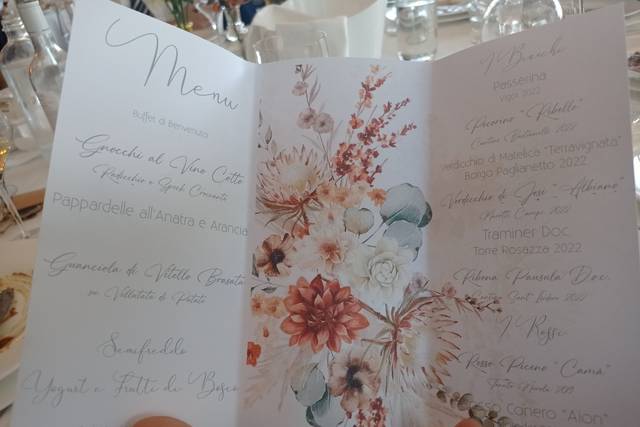 Menu
Buffet di Benvenuto
Gnocchi al Vino Cotto
Radicchio e Speck Croccante
Pappardelle all'Anatra e Arancia
Guanciola di Vitello Brasata
su Vellutata di Patate
Semifreddo
Yogurt e Frutti di Bosco
I Bianchi
Passerina
Vigor 2022
Pecorino "Ribelle"
2022
Verdicchio di Matelica "Terravignata"
Borgo Paglianetto 2022
Verdicchio di Jesi "Albiano"
2022
Traminer Doc
Torre Rosazza 2022
Ribona Pausula Doc
Sant' 2022
I Rossi
Rosso Piceno "Camà"
2019
Conero "Aion"